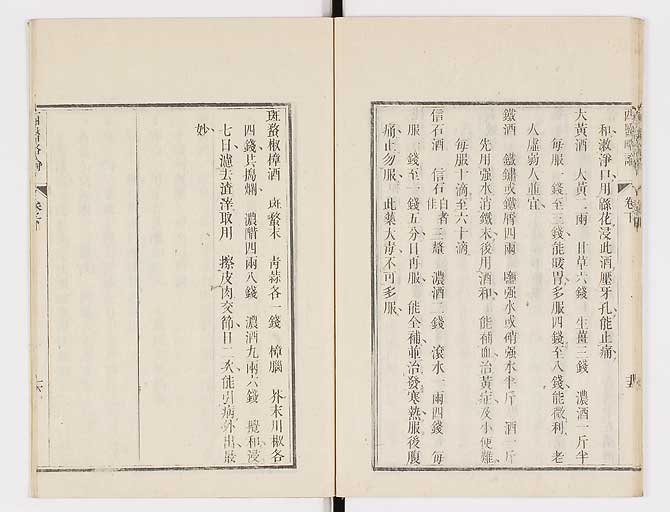 西醫略論 卷下
和、漱淨口、用綿花浸此酒壓牙孔、能止痛、
大黃酒 大黃二兩 甘草六錢 生薑三錢 濃酒一斤半
每服一錢至三錢、能暖胃、多服四錢至八錢、能微利、老
人虛弱人並宜、
鐵酒 鐵鏽或鐵屑四兩 鹽强水或硝强水半斤 酒一斤
先用强水消鐵末、後用酒和、能補血、治黃症及小便難、
每服十滴至六十滴、
信石酒 信石白者佳三釐 濃酒二錢 滾水一兩四錢 每
服一錢至一錢五分、日再服、能全補、並治發寒熱、服後腹
痛、止勿服、此藥大毒、不可多服、
斑蝥椒樟酒 斑蝥末 靑蒜各一錢 樟腦 芥末川椒各
四錢、共搗爛、濃醋四兩八錢 濃酒九兩六錢 攪和、浸
七日、濾去渣滓取用 擦皮肉交節、日二次、能引病外出、最
妙、
西醫略論 卷下